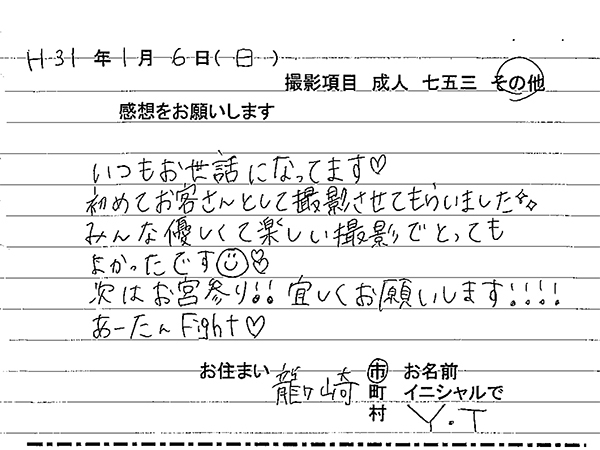 H31年1月6日(日)
撮影項目 成人 七五三 その他
感想をお願いします
いつもお世話になってます♡
初めてお客さんとして撮影させてもらいました✨
みんな優しくて楽しい撮影でとっても
よかったです☺♡
次はお宮参り!! 宜しくお願いします!!!!
あーたん Fight♡
お住まい 龍ヶ崎 市 町 村 お名前 イニシャルで Y.T